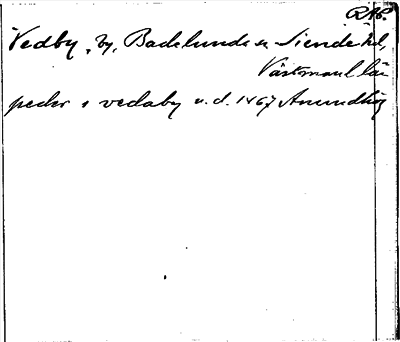 RAP.
Vedby, by, Badelunda sn Siende hd,
Västmanl län
peder i vedaby u.d. 1467 Anundhög